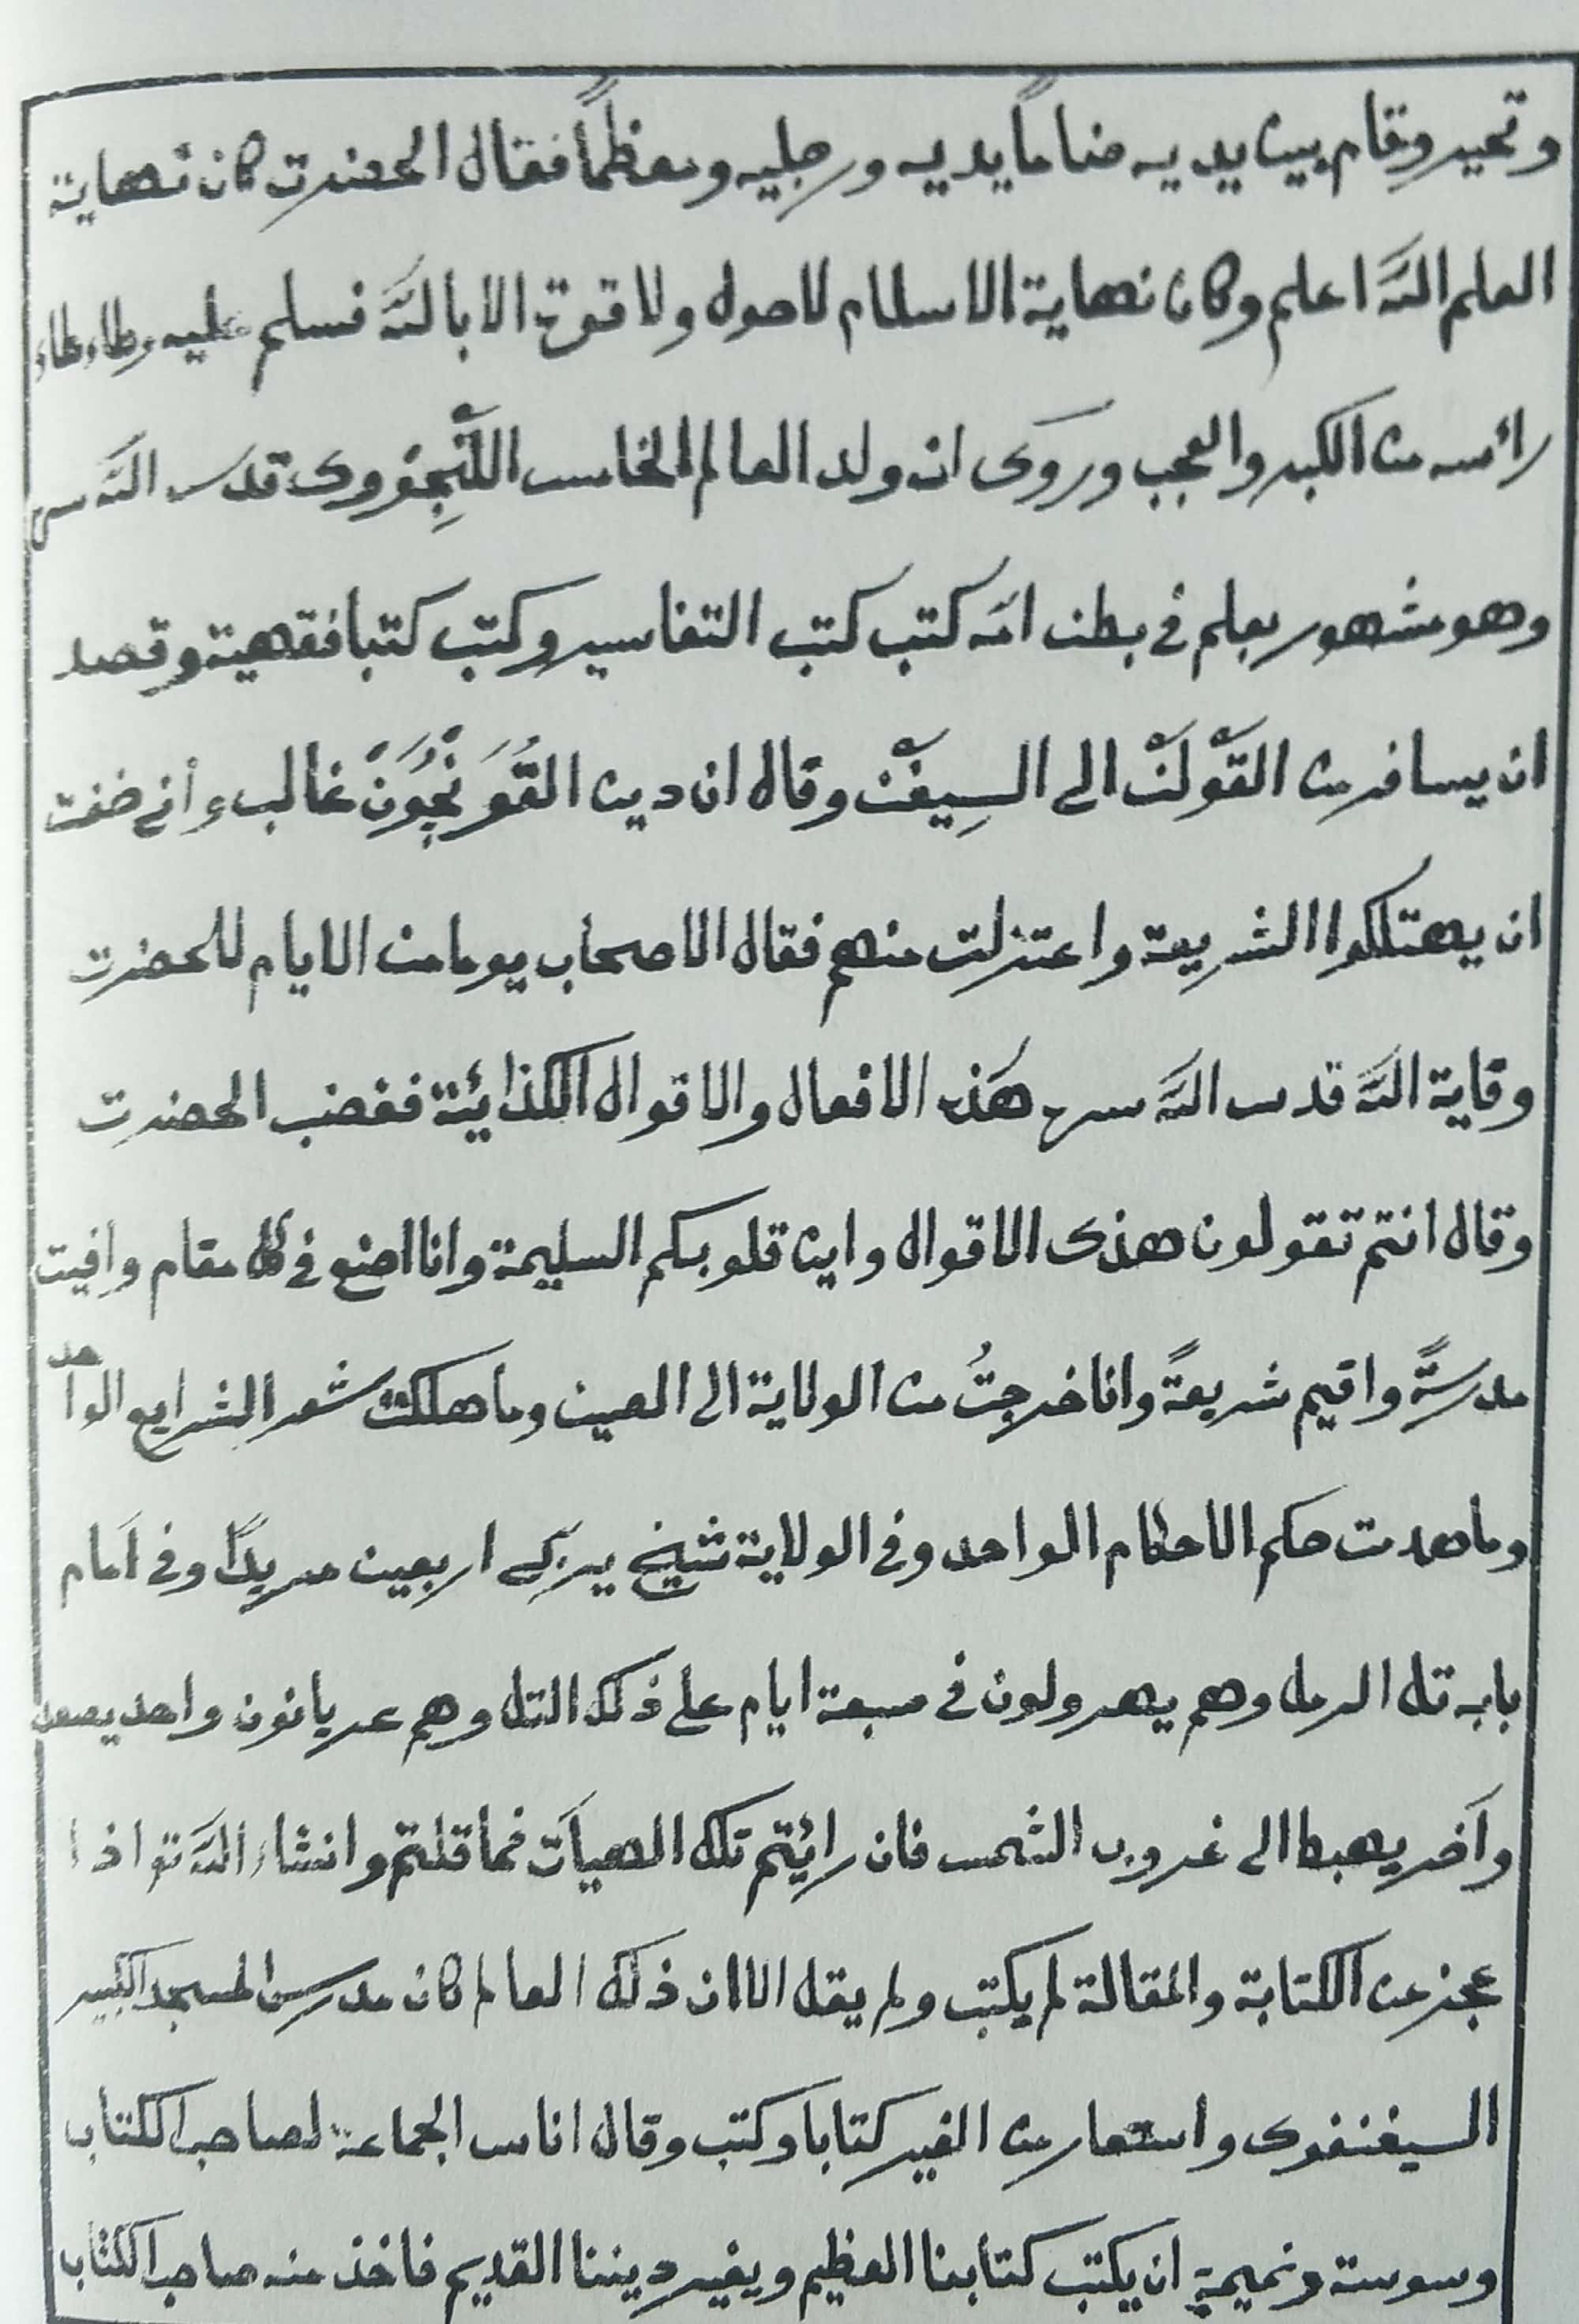 وتحير وقام بين يديه ضاما يديه ورجليه ومعظمًا فقال الحضرت كان نهاية
العلم اللّٰه اعلم وكان نهاية الاسلام لاحول ولا قوة الا باللّٰه فسلم عليه وطاءطاء
رائسه من الكبر والعجب وروى ان ولد العالم الخامس قدس اللّٰه سره
وهو مشهور بعلم فى بطن امه كتب كتب التفاسير وكتب كتبا فقهية وقصد
ان يسافر من القَوْلَنْ الى السِيفَنْ وقال ان دين غالب وأنى خفت
ان يهتلكوا الشريعة واعتزلت منهم فقال الاصحاب يوما من الايام للحضرت
وقاية اللّٰه قدس اللّٰه سره هَذه الافعال والاقوال الكذائية فغضب الحضرت
وقال انتم تقولون هذى الاقوال واين قلوبكم السليمة وانا اضع فى كل مقام وافيت
مدرسةً واقيم شريعةً وانا خرجتُ من الولاية الى الصين وما هلكت شعر الشرايع الواحد
وما هدمت حكم الاحكام الواحد وفى الولاية شيخ يربى اربعين مريدًا وفى اَمام
بابه تل الرمل وهم يهرولون فى سبعة ايام على ذلك التل وهم عريانون واحد يصعد
واَخر يهبط الى غروب الشمس فان رائيتم تلك الهياَت فما قلتم وانشاء اللّٰه تع اذا
عجز عن الكتابة والمقالة لم يكتب ولم يقل الا ان ذلك العالم كان مدرس المسجد الكبير
السيفنفوى واستعار من الغير كتابا وكتب وقال اناس الجماعة لصاحب الكتاب
وسوسة ونميمة ان يكتب كتابنا العظيم ويغير ديننا القديم فاخذ منه صاحب الكتاب